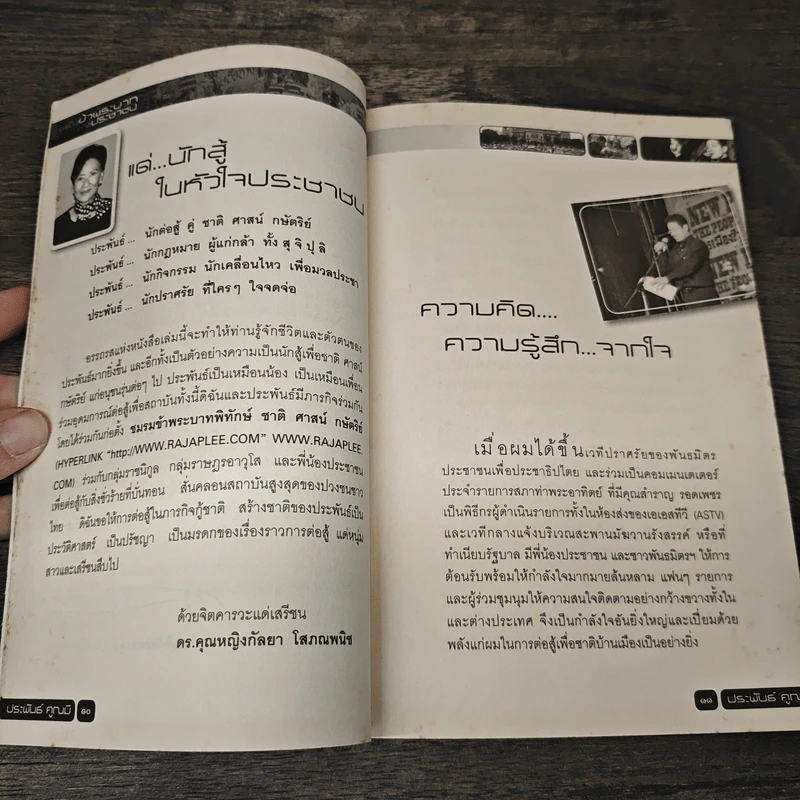 ข้าพระบาท
ประชาชน
แด่...นักสู้
ในหัวใจประชาชน
ประพันธ์ ... นักต่อสู้ คู่ ชาติ ศาสน์ กษัตริย์
ประพันธ์ ... นักกฎหมาย ผู้แก่กล้า ทั้ง สุ จิ ปุ ลิ
ประพันธ์ ... นักกิจกรรม นักเคลื่อนไหว เพื่อมวลประชา
ประพันธ์ ... นักปราศรัย ที่ใครๆ ใจจดจ่อ
อรรถรสแห่งหนังสือเล่มนี้จะทำให้ท่านรู้จักชีวิตและตัวตนของ
ประพันธ์มากยิ่งขึ้น และอีกทั้งเป็นตัวอย่างความเป็นนักสู้เพื่อชาติ ศาสน์
กษัตริย์ แก่อนุชนรุ่นต่อๆ ไป ประพันธ์เป็นเหมือนน้อง เป็นเหมือนเพื่อน
ร่วมอุดมการณ์ต่อสู้เพื่อสถาบันทั้งนี้ดิฉันและประพันธ์มีภารกิจร่วมกัน
โดยได้ร่วมกันก่อตั้ง ชมรมข้าพระบาทพิทักษ์ ชาติ ศาสน์ กษัตริย์
(HYPERLINK "http://WWW.RAJAPLEE.COM" WWW.RAJAPLEE.
COM) ร่วมกับกลุ่มราชนิกูล กลุ่มราษฎรอาวุโส และพี่น้องประชาชน
เพื่อต่อสู้กับสิ่งชั่วร้ายที่บั่นทอน สั่นคลอนสถาบันสูงสุดของปวงชนชาว
ไทย ดิฉันขอให้การต่อสู้ในภารกิจกู้ชาติ สร้างชาติของประพันธ์เป็น
ประวัติศาสตร์ เป็นปรัชญา เป็นมรดกของเรื่องราวการต่อสู้ แด่หนุ่ม
สาวและเสรีชนสืบไป
ด้วยจิตคารวะแด่เสรีชน
ดร.คุณหญิงกัลยา โสภณพนิช
ประพันธ์ คูณมี ๑๐
NEW
THE PEOPL
ความคิด....
ความรู้สึก...จากใจ
เมื่อผมได้ขึ้นเวทีปราศรัยของพันธมิตร
ประชาชนเพื่อประชาธิปไตย และร่วมเป็นคอมเมนเตเตอร์
ประจำรายการสภาท่าพระอาทิตย์ ที่มีคุณสำราญ รอดเพชร
เป็นพิธีกรผู้ดำเนินรายการทั้งในห้องส่งของเอเอสทีวี (ASTV)
และเวทีกลางแจ้งบริเวณสะพานมัฆวานรังสรรค์ หรือที่
ทำเนียบรัฐบาล มีพี่น้องประชาชน และชาวพันธมิตรฯ ให้การ
ต้อนรับพร้อมให้กำลังใจมากมายล้นหลาม แฟนๆ รายการ
และผู้ร่วมชุมนุมให้ความสนใจติดตามอย่างกว้างขวางทั้งใน
และต่างประเทศ จึงเป็นกำลังใจอันยิ่งใหญ่และเปี่ยมด้วย
พลังแก่ผมในการต่อสู้เพื่อชาติบ้านเมืองเป็นอย่างยิ่ง
๑๑ ประพันธ์ คูณ